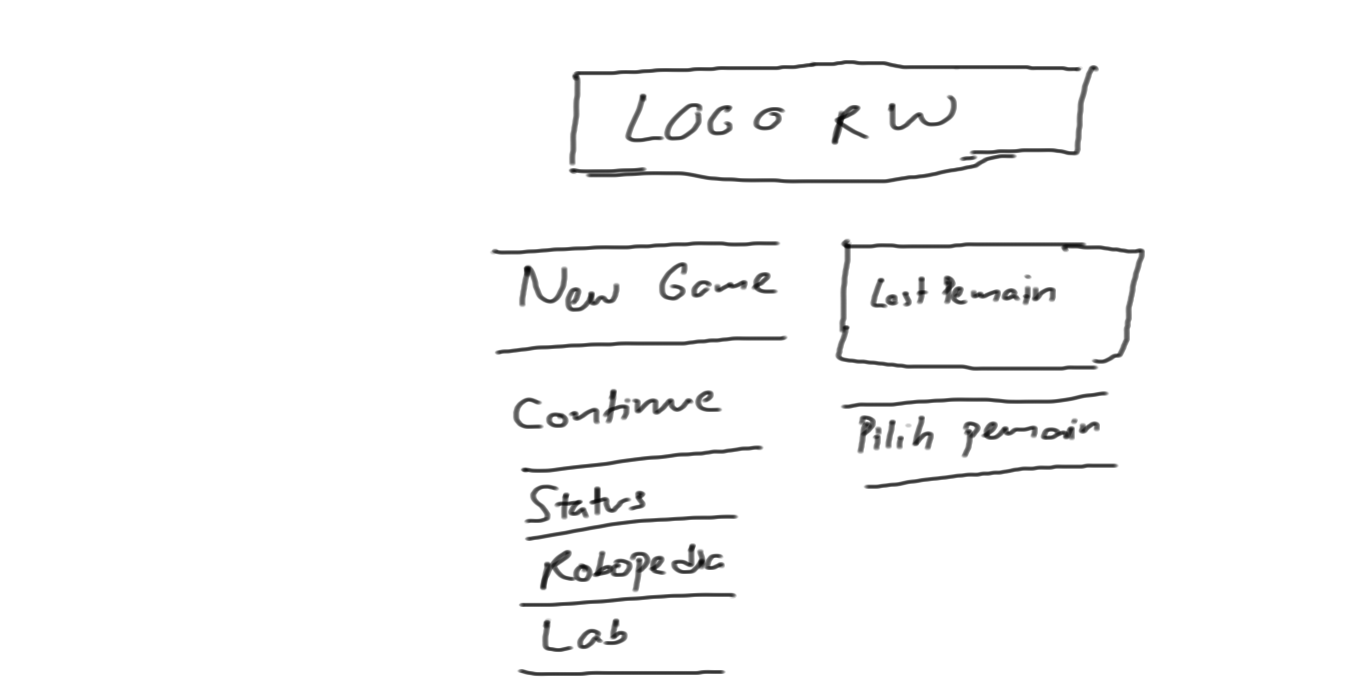 LOGO RW
New Game
Continue
Status
Robopedia
Lab
Last Pemain
Pilih pemain